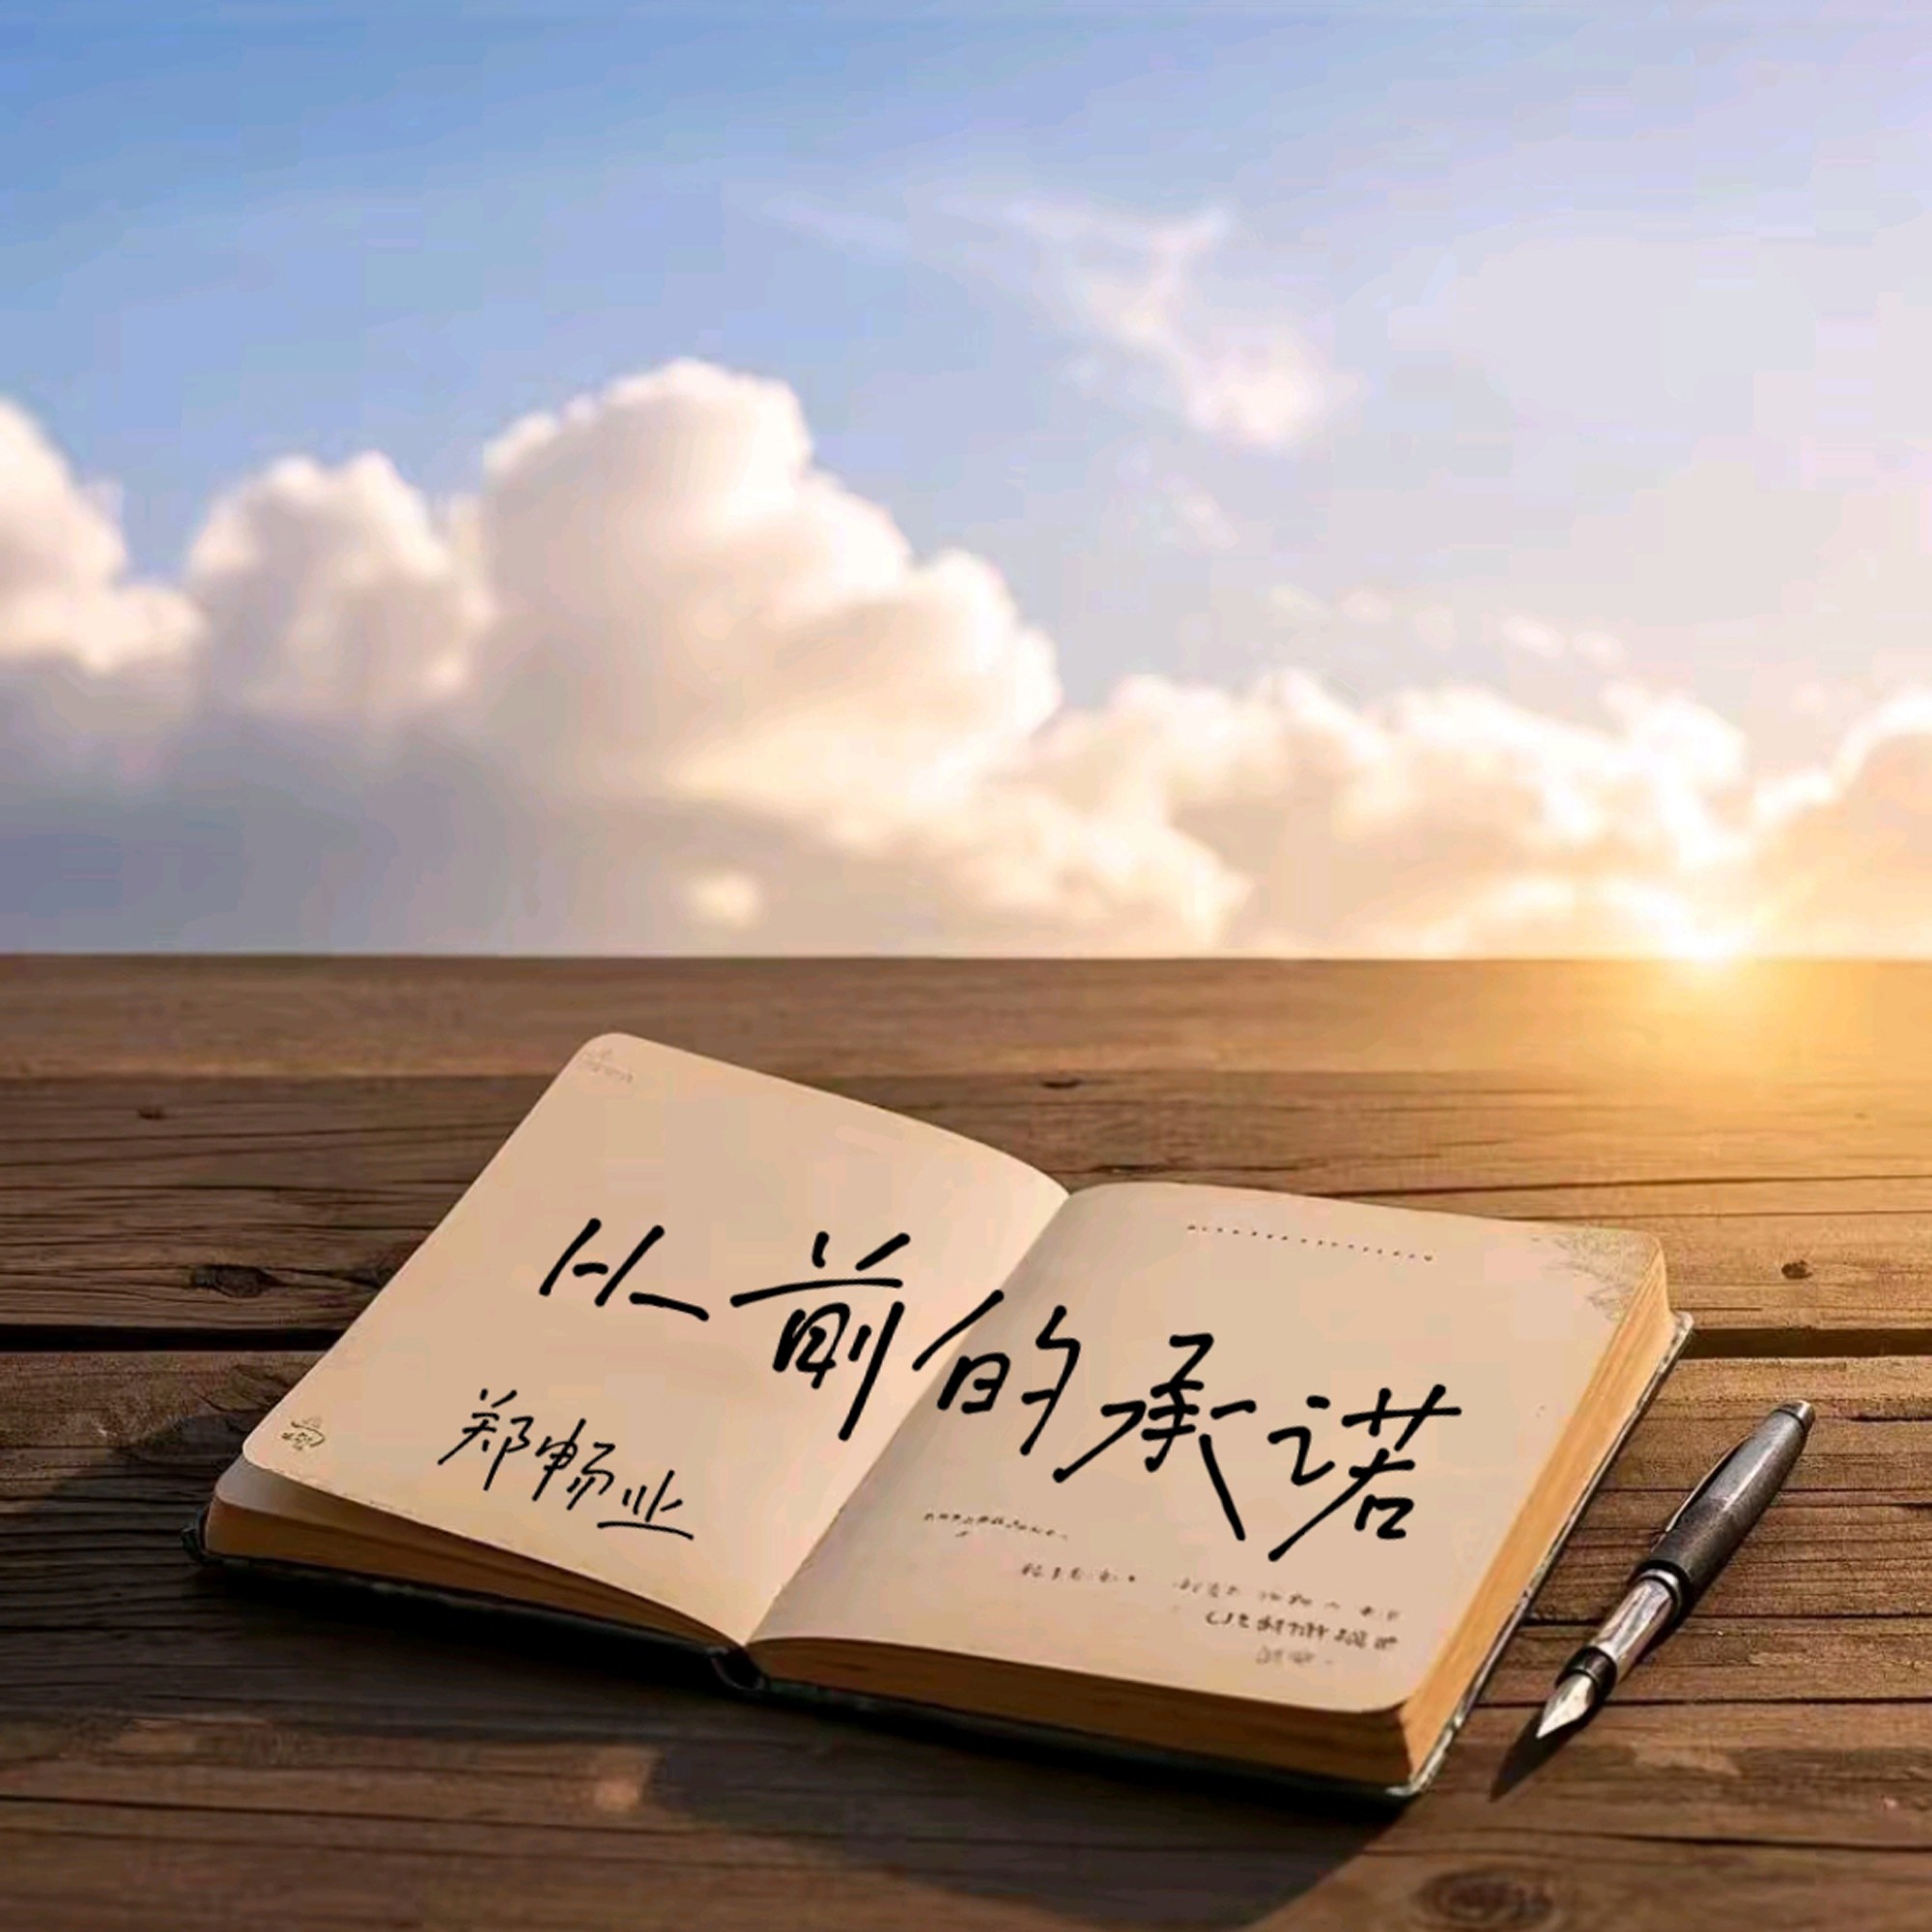 从前的承诺
郑畅业